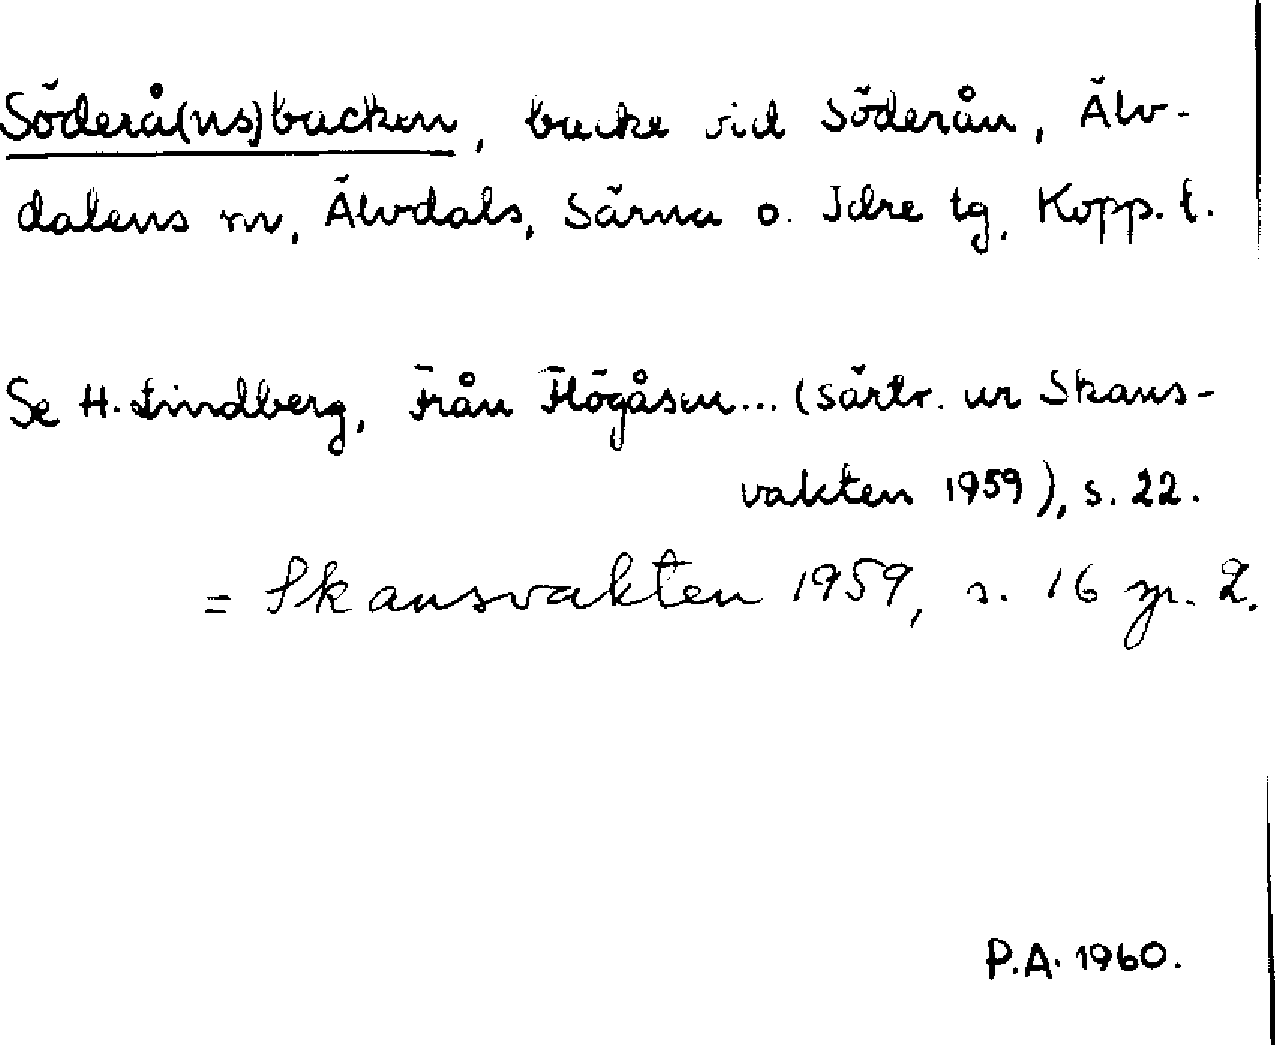 Söderå(ns)backen, backe vid Söderån, Älv-
dalens sn, Älvdals, Särna o. Idre tg, Kopp. l.
Se H. Lindberg, Från Flögåsen... (särtr. ur Skans-
vakten 1959), s. 22.
= Skansvakten 1959, s. 16 sp. 2.
P.A. 1960.